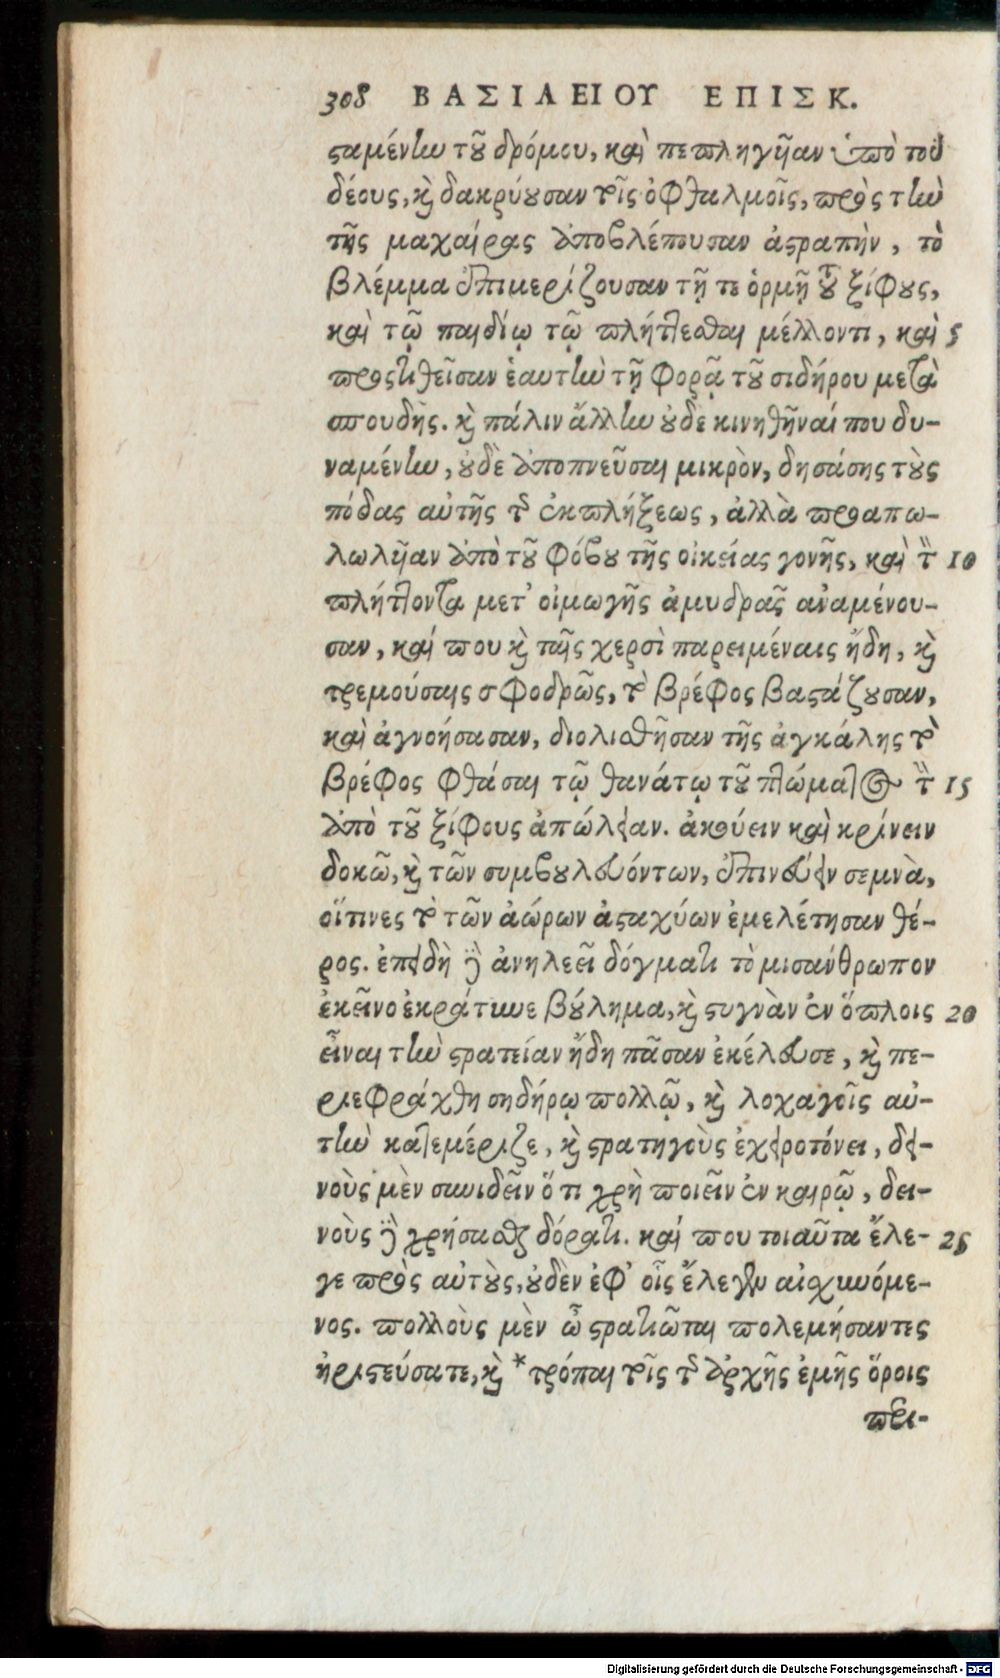 308 ΒΑΣΙΛΕΙΟΥ ΕΠΙΣΚ.
σταμένην τοῦ δρόμου, καὶ πεπληγῆαν ὑπὸ τοῦ
δέους, καὶ δακρύουσαν τοῖς ὀφθαλμοῖς, πρὸς τὴν
τῆς μαχαίρας ἀποβλέπουσαν ἀστραπὴν, τὸ
βλέμμα ἐπιμερίζουσαν τῇ τε ὁρμῇ τοῦ ξίφους,
καὶ τῷ παιδίῳ τῷ πλήττεσθαι μέλλοντι, καὶ 5
προστιθεῖσαν ἑαυτὴν τῇ φορᾷ τοῦ σιδήρου μετὰ
σπουδῆς. καὶ πάλιν ἄλλην οὐδὲ κινηθῆναί που δυ-
ναμένην, οὐδὲ ἀποπνεῦσαι μικρὸν, δησάσης τοὺς
πόδας αὐτῆς τῆς ἐκπλήξεως, ἀλλὰ προαπω-
λωλῆαν ἀπὸ τοῦ φόβου τῆς οἰκείας γονῆς, καὶ τὸν 10
πλήττοντα μετ' οἰμωγῆς ἀμυδρᾶς ἀναμένου-
σαν, καί που καὶ ταῖς χερσὶ παρειμέναις ἤδη, καὶ
τρεμούσαις σφοδρῶς, τὸ βρέφος βαστάζουσαν,
καὶ ἀγνοήσασαν, διολισθῆσαν τῆς ἀγκάλης τὸ
βρέφος φθάσαι τῷ θανάτῳ τοῦ πτώματος τὴν 15
ἀπὸ τοῦ ξίφους ἀπώλειαν. ἀκούειν καὶ κρίνειν
δοκῶ, καὶ τῶν συμβουλευόντων, ἐπινεύειν σεμνὰ,
οἵτινες τὸ τῶν ἀώρων ἀσταχύων ἐμελέτησαν θέ-
ρος. ἐπειδὴ δὲ ἀνηλεεῖ δόγματι τὸ μισάνθρωπον
ἐκεῖνο ἐκράτυνε βούλημα, καὶ στυγνὰν ἐν ὅπλοις 20
εἶναι τὴν στρατείαν ἤδη πᾶσαν ἐκέλευσε, καὶ πε-
ριεφράχθη σηδήρῳ πολλῷ, καὶ λοχαγοῖς αὐ-
τὴν κατεμέριζε, καὶ στρατηγοὺς ἐχειροτόνει, δει-
νοὺς μὲν συνιδεῖν ὅτι χρὴ ποιεῖν ἐν καιρῷ, δει-
νοὺς δὲ χρήσασθαι δόρατι. καί που τοιαῦτα ἔλε- 25
γε πρὸς αὐτοὺς, οὐδὲν ἐφ' οἷς ἔλεγεν αἰσχυνόμε-
νος. πολλοὺς μὲν ὦ στρατιῶται πολεμήσαντες
ἠριστεύσατε, καὶ * τρόπαι τοῖς τῆς ἀρχῆς ἐμῆς ὅροις
περι-
Digitalisierung gefördert durch die Deutsche Forschungsgemeinschaft - DFG